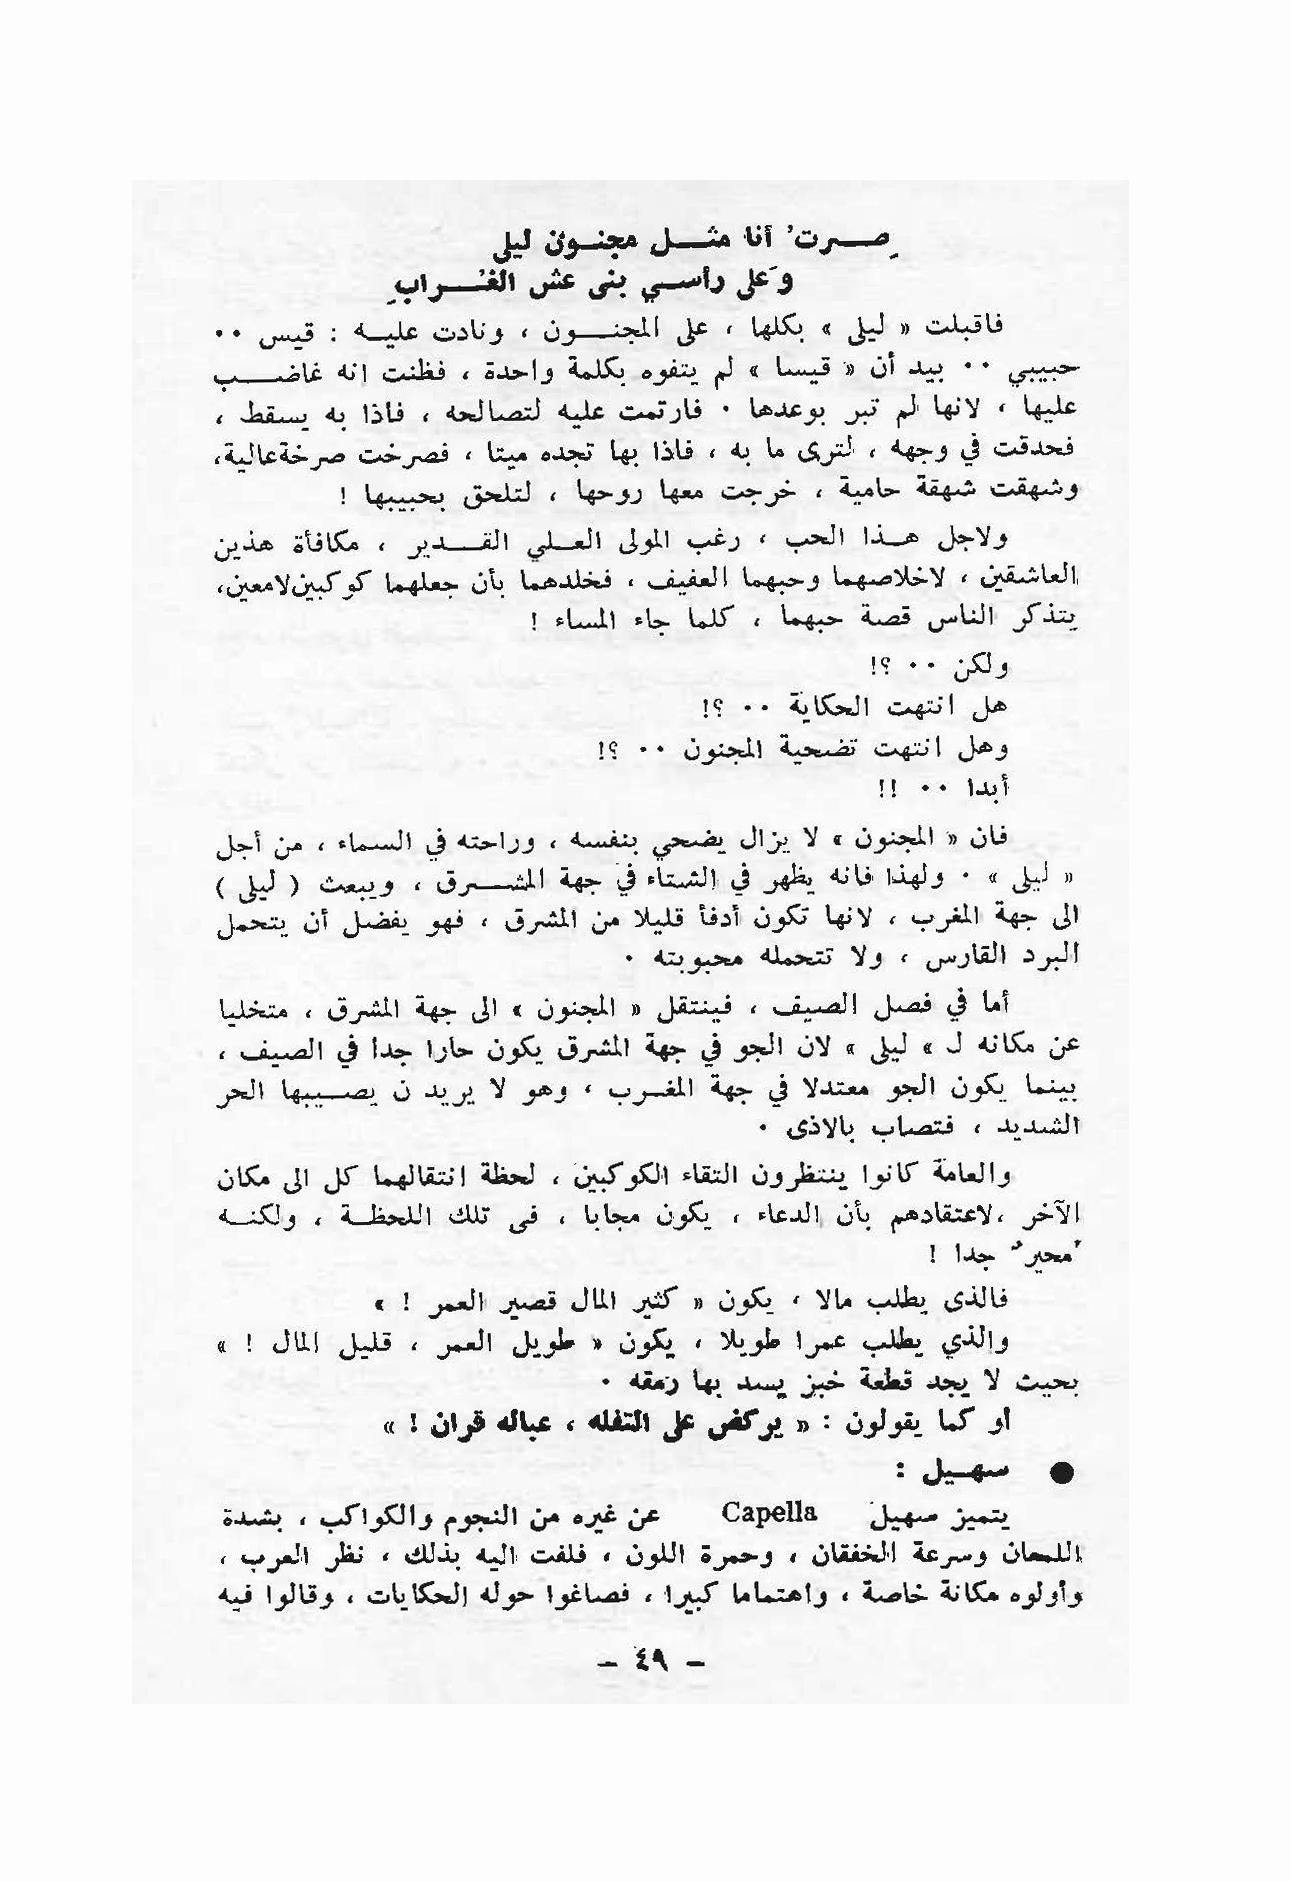 صِـــرتُ أنا مثــــل مجنــون ليلى
وَعلى رأســي بنى عش الغُــــرابِ
فاقبلت « ليلى » بكلها ، على المجنــــون ، ونادت عليــه : قيس ٠٠
حبيبي ٠٠ بيد أن « قيسا » لم يتفوه بكلمة واحدة ، فظنت انه غاضــــب
عليها ، لانها لم تبر بوعدها ٠ فارتمت عليه لتصالحه ، فاذا به يسقط ،
فحدقت في وجهه ، لترى ما به ، فاذا بها تجده ميتا ، فصرخت صرخةعالية،
وشهقت شهقة حامية ، خرجت معها روحها ، لتلحق بحبيبها !
ولاجل هــذا الحب ، رغب المولى العــلي القــــدير ، مكافأة هذين
العاشقين ، لاخلاصهما وحبهما العفيف ، فخلدهما بأن جعلهما كوكبين‌لامعين،
يتذكر الناس قصة حبهما ، كلما جاء المساء !
ولكن ٠٠ ؟!
هل انتهت الحكاية ٠٠ ؟!
وهل انتهت تضحية المجنون ٠٠ ؟!
أبدا ٠٠ !!
فان « المجنون » لا يزال يضحي بنفسه ، وراحته في السماء ، من أجل
« ليلى » ٠ ولهذا فانه يظهر في الشتاء في جهة المشــــرق ، ويبعث ( ليلى )
الى جهة المغرب ، لانها تكون أدفأ قليلا من المشرق ، فهو يفضل أن يتحمل
البرد القارس ، ولا تتحمله محبوبته ٠
أما في فصل الصيف ، فينتقل « المجنون » الى جهة المشرق ، متخليا
عن مكانه لـ » ليلى » لان الجو في جهة المشرق يكون حارا جدا في الصيف ،
بينما يكون الجو معتدلا في جهة المغــرب ، وهو لا يريد ن يصــيبها الحر
الشديد ، فتصاب بالاذى ٠
والعامة كانوا ينتظرون التقاء الكوكبين ، لحظة انتقالهما كل الى مكان
الآخر ،لاعتقادهم بأن الدعاء ، يكون مجابا ، فى تلك اللحظــة ، ولكنــه
مُحيرٌ جدا !
فالذى يطلب مالا ، يكون « كثير المال قصير العمر ! »
والذي يطلب عمرا طويلا ، يكون « طويل العمر ، قليل المال ! »
بحيث لا يجد قطعة خبز يسد بها رمقه ٠
او كما يقولون : « يركض على التفله ، عباله قران ! »
● سهــيل :
يتميز سهيل Capella عن غيره من النجوم والكواكب ، بشدة
اللمعان وسرعة الخفقان ، وحمرة اللون ، فلفت اليه بذلك ، نظر العرب ،
وأولوه مكانة خاصة ، واهتماما كبيرا ، فصاغوا حوله الحكايات ، وقالوا فيه
– ٤٩ –